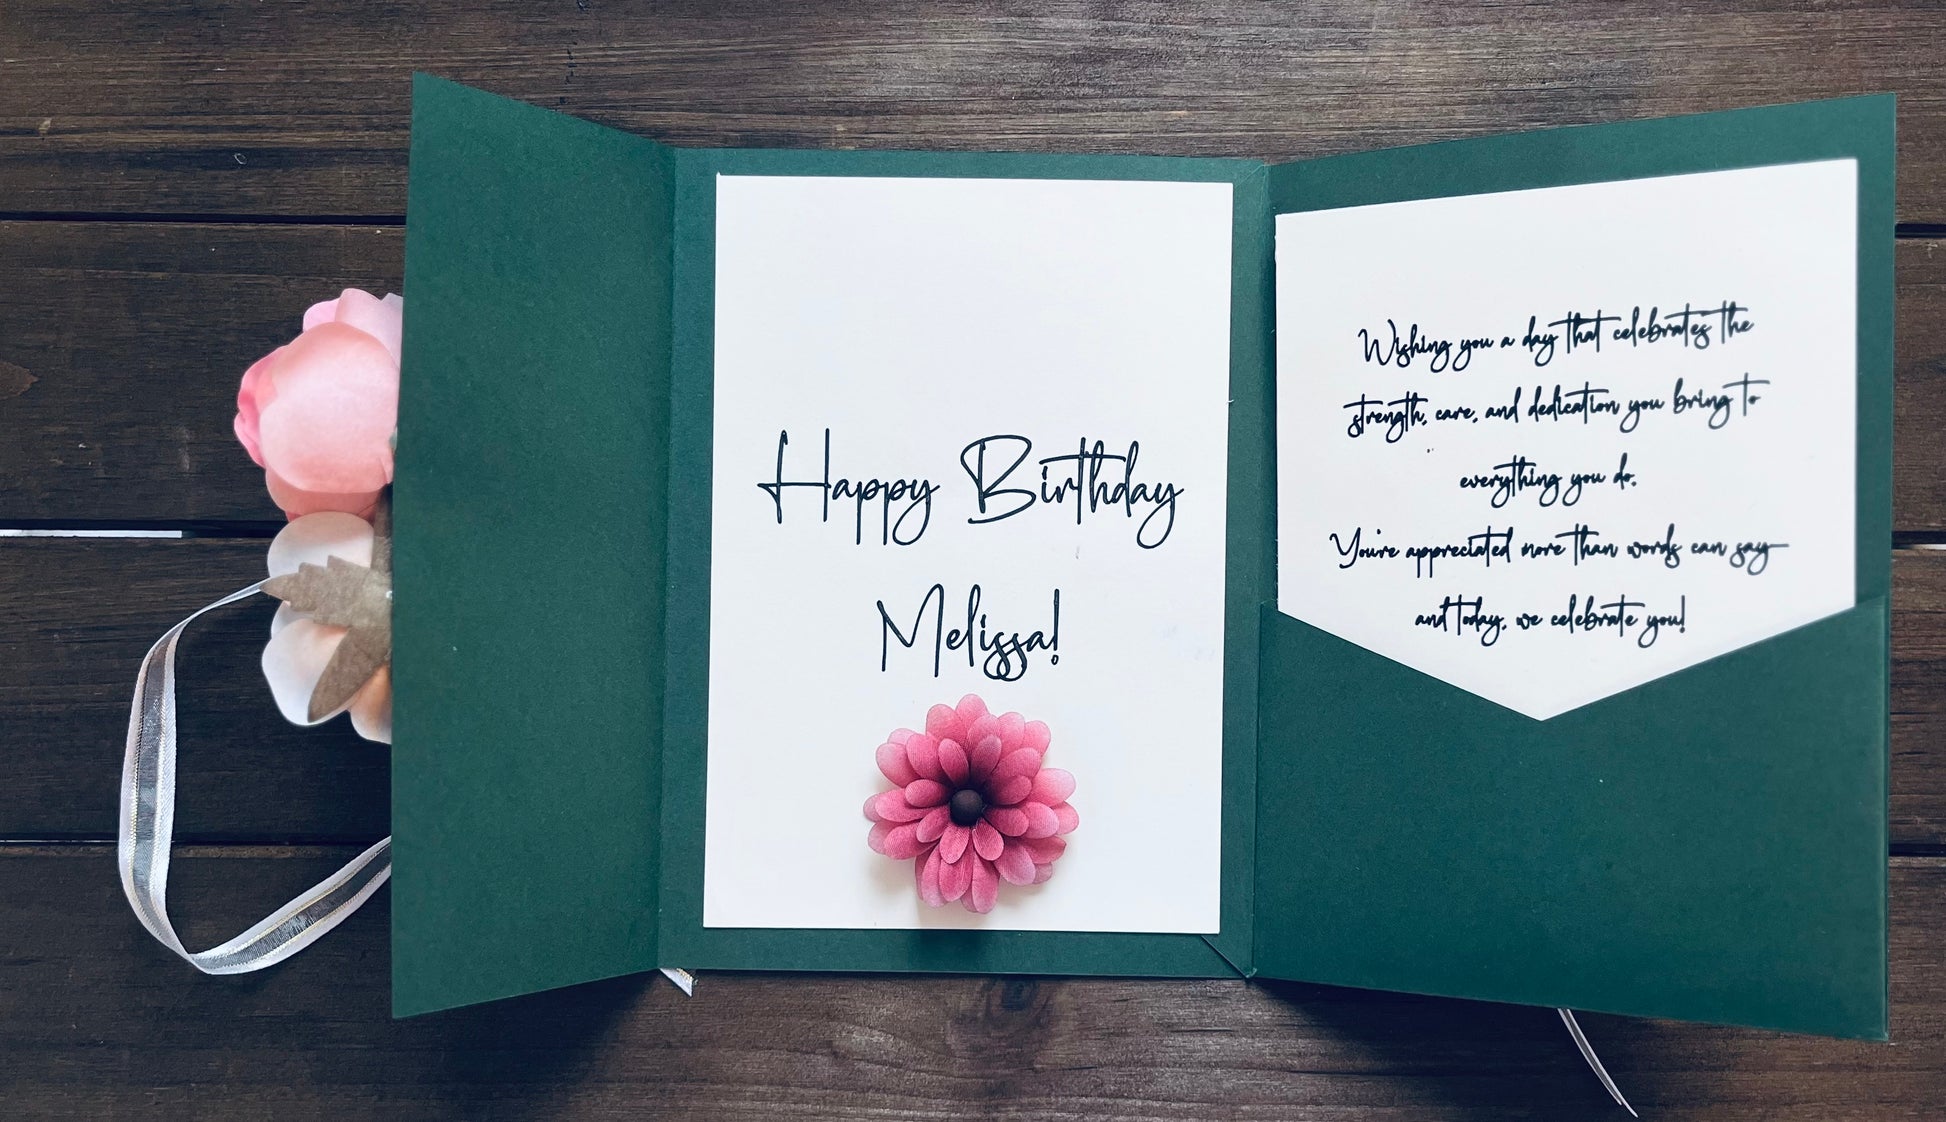 Happy Birthday
Melissa!
Wishing you a day that celebrates the
strength, care, and dedication you bring to
everything you do.
You're appreciated more than words can say
and today, we celebrate you!